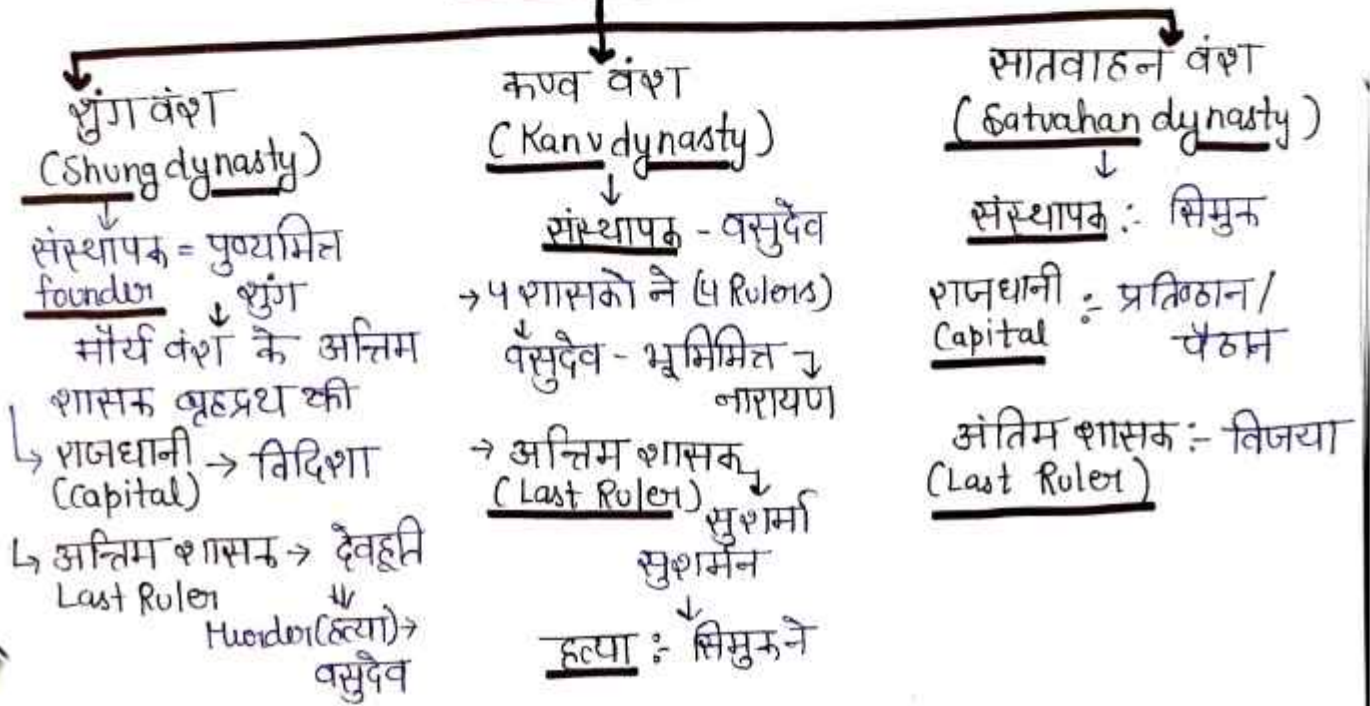 शुंग वंश
(Shung dynasty)
संस्थापक = पुष्यमित्त
founder शुंग
मौर्य वंश के अन्तिम
शासक बृहद्रथ की
राजधानी → विदिशा
(Capital)
अन्तिम शासक → देवहूति
Last Ruler
Murder(हत्या)→
वसुदेव
कण्व वंश
(Kanv dynasty)
संस्थापक - वसुदेव
→ 4 शासको ने (4 Rulers)
वसुदेव - भूमिमित्त
नारायण
→ अन्तिम शासक
(Last Ruler)
सुशर्मा
सुशर्मन
हत्या :- सिमुक ने
सातवाहन वंश
(Satvahan dynasty)
संस्थापक :- सिमुक
राजधानी :- प्रतिष्ठान/
Capital पैठान
अंतिम शासक :- विजया
(Last Ruler)